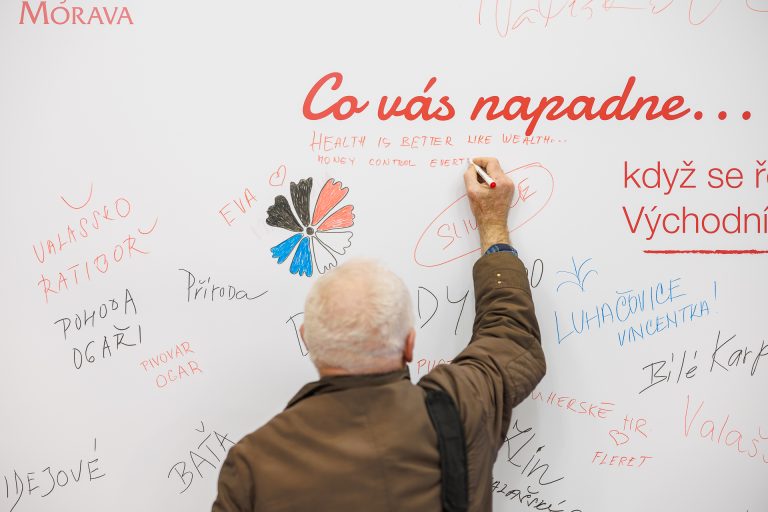 MORAVA
Co vás napadne...
HEALTH IS BETTER LIKE WEALTH...
MONEY CONTROL
když se ř
Východní
EVA
VALAŠSKO
RATIBOŘ
Příroda
POHODA
OGAŘI
PIVOVAR
OGAR
LUHAČOVICE
VINCENTKA!
Bílé Karp
UHERSKÉ HR.
FLERET
Valaš
BAŤA
Zlín
IDEJOVÉ